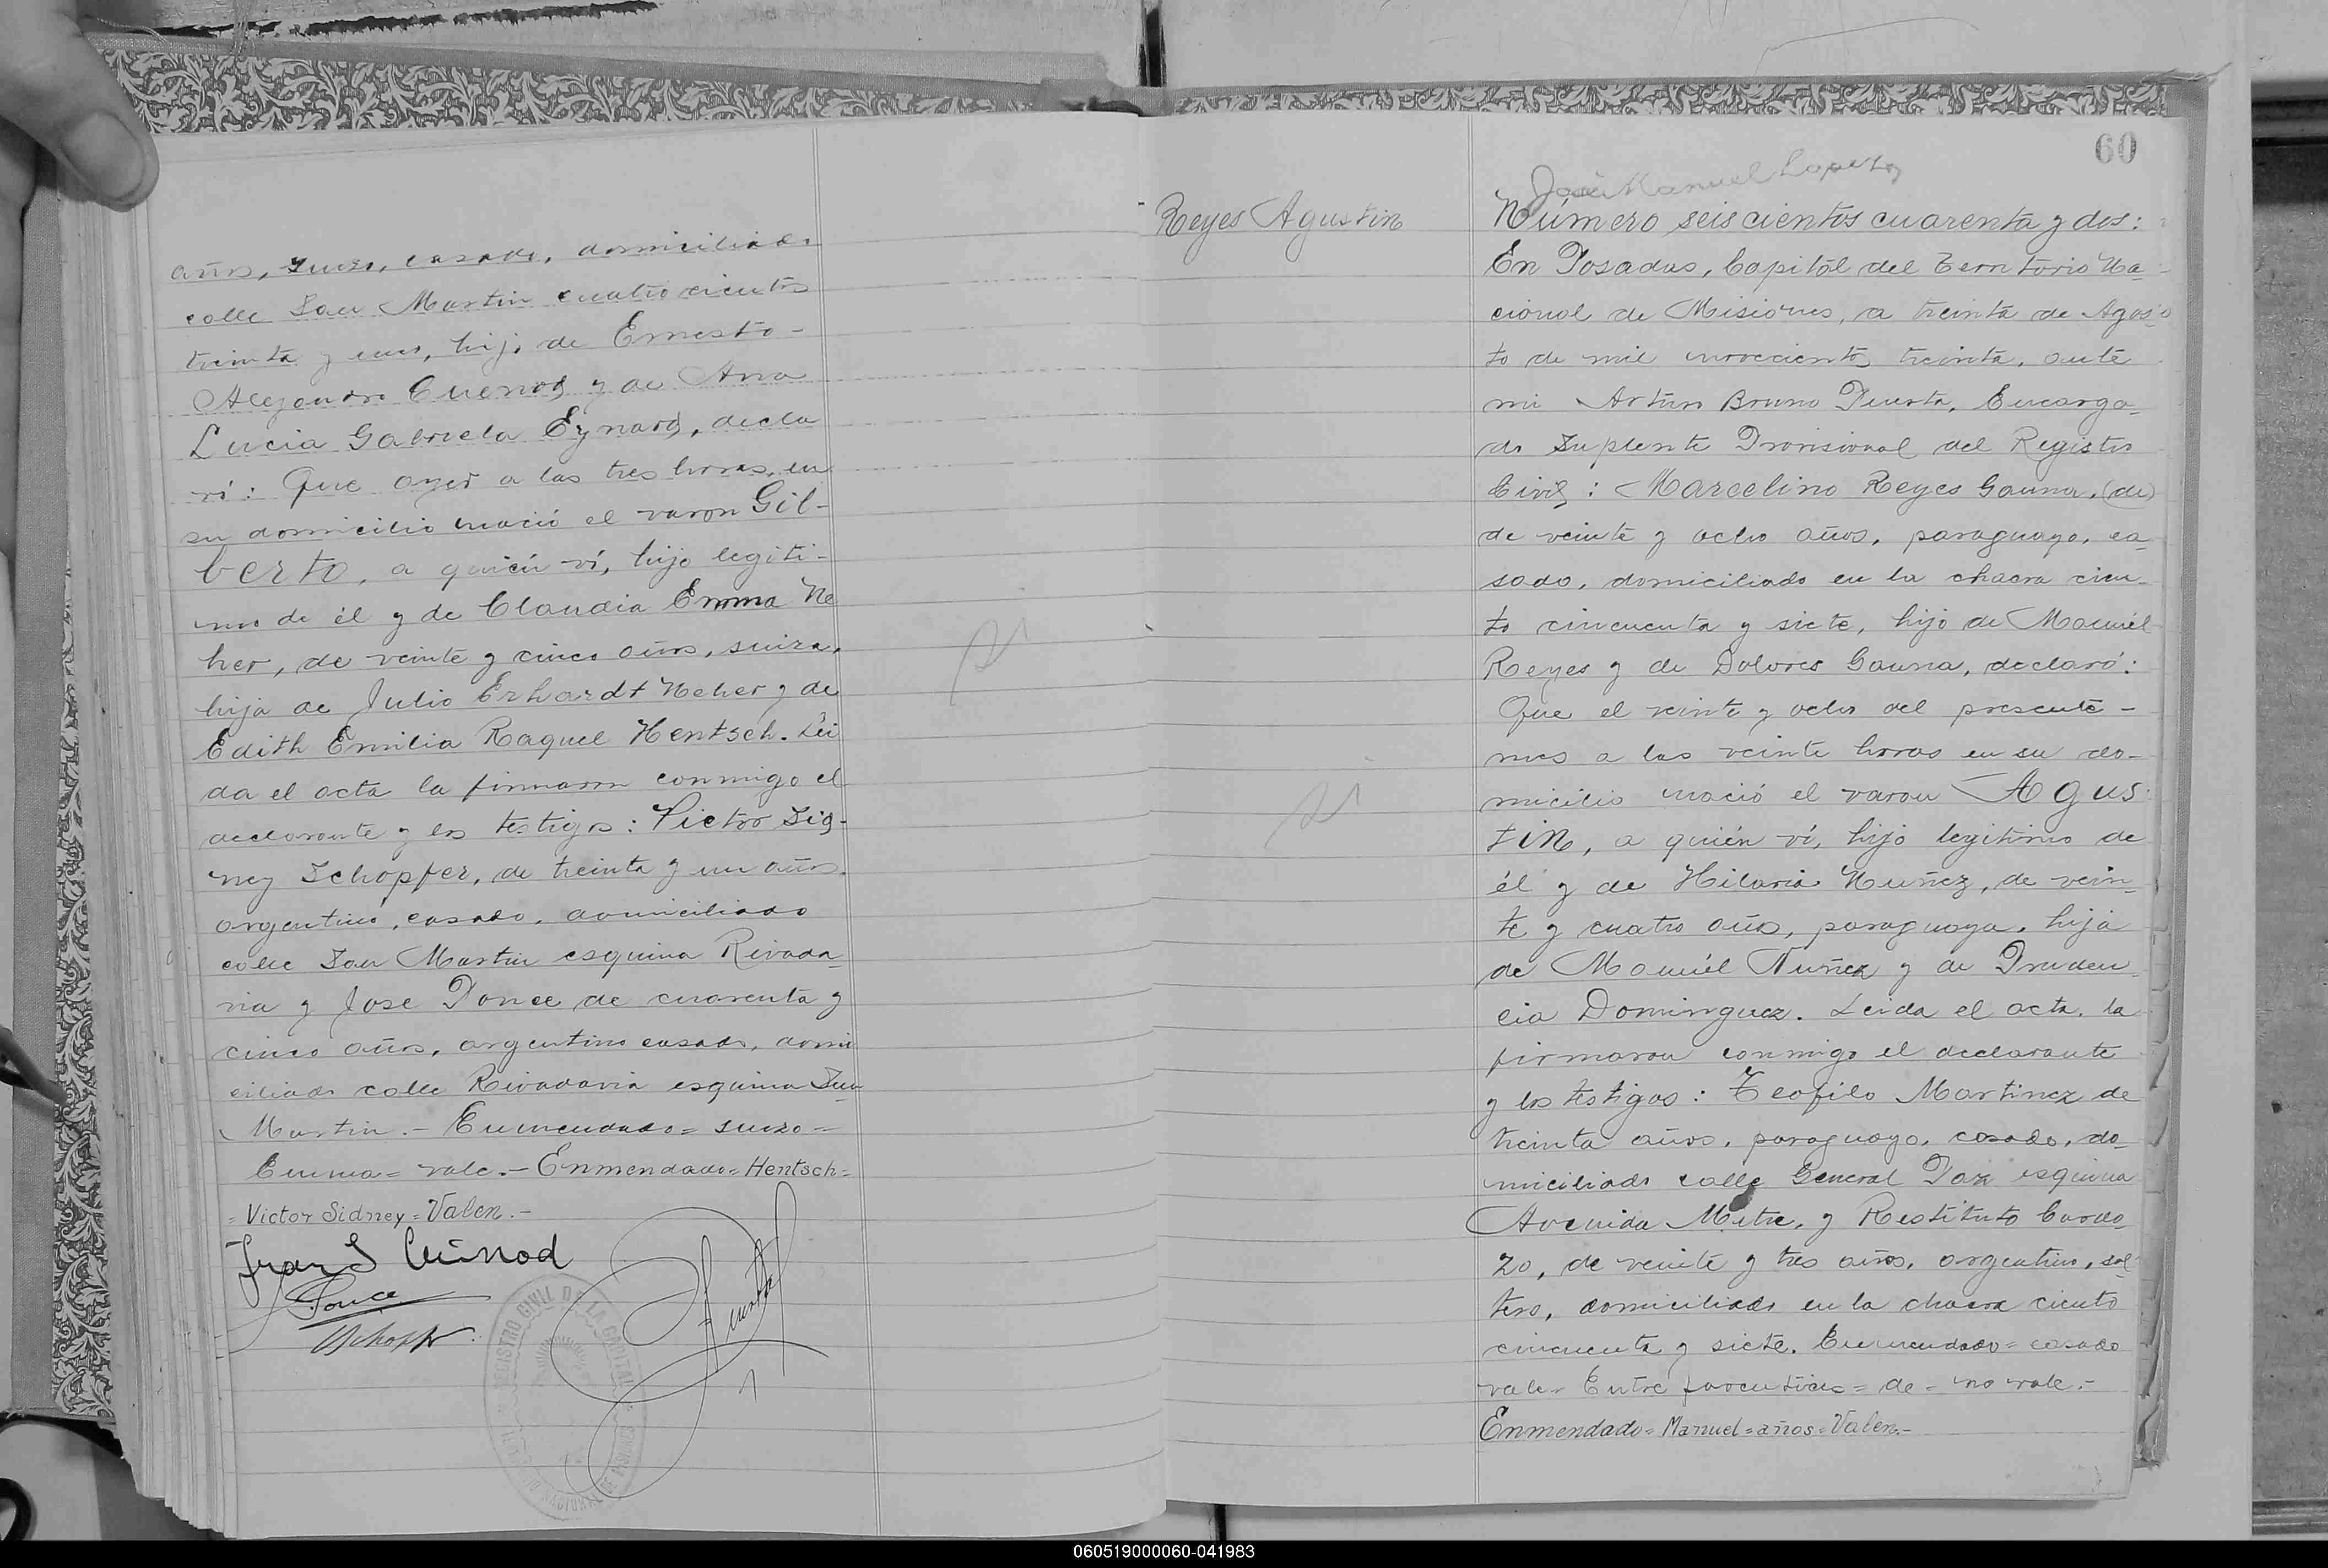 años, suizo, casado, domiciliado
calle San Martin cuatrocientos
treinta y uno, hijo de Ernesto
Alejandro Cuenod y de Ana
Lucia Gabriela Eynard, decla
ró: Que ayer a las tres horas, en
su domicilio nació el varon Gil-
berto, a quién ví, hijo legíti-
mo de él y de Claudia Emma Ne
her, de veinte y cinco años, suiza,
hija de Julio Erhardt Neher y de
Edith Emilia Raquel Hentsch. Lei
da el acta la firmaron conmigo el
declarante y los testigos: Victor Sid-
ney Schopfer, de treinta y un años,
argentino, casado, domiciliado
calle San Martin esquina Rivada-
via y Jose Ponce de cuarenta y
cinco años, argentino casado, domi
ciliado calle Rivadavia esquina San
Martin.- Enmendado= suizo=
Emma= vale.- Enmendado= Hentsch=
= Victor Sidney= Valen.-
Ponce
REGISTRO CIVIL DE LA CAPITAL
60
José Manuel Lopez
Reyes Agustin
Número seiscientos cuarenta y dos:
En Posadas, Capitál del Territorio Na-
cional de Misiones, a treinta de Agos-
to de mil novecientos treinta, ante
mi Arturo Bruno Puerta, Encarga-
do Suplente Provisional del Registro
Civil: Marcelino Reyes Gauna, (de)
de veinte y ocho años, paraguayo, ca-
sado, domiciliado en la chacra cien-
to cincuenta y siete, hijo de Manuél
Reyes y de Dolores Gauna, declaró:
Que el veinte y ocho del presente -
mes a las veinte horas en su do-
micilio nació el varon Agus-
tin, a quién ví, hijo legitimo de
él y de Hilaria Nuñez, de vein-
te y cuatro años, paraguaya, hija
de Manuél Nuñez y de Pruden-
cia Dominguez. Leida el acta, la
firmaron conmigo el declarante
y los testigos: Teofilo Martinez de
treinta años, paraguayo, casado, do-
miciliado calle General Paz esquina
Avenida Mitre, y Restituto Cardo-
zo, de veinte y tres años, argentino, sol-
tero, domiciliado en la chacra ciento
cincuenta y siete. Enmendado= casado
vale- Entre parentesis= de= no vale.-
Enmendado= Manuel= años= Valen.-
060519000060-041983